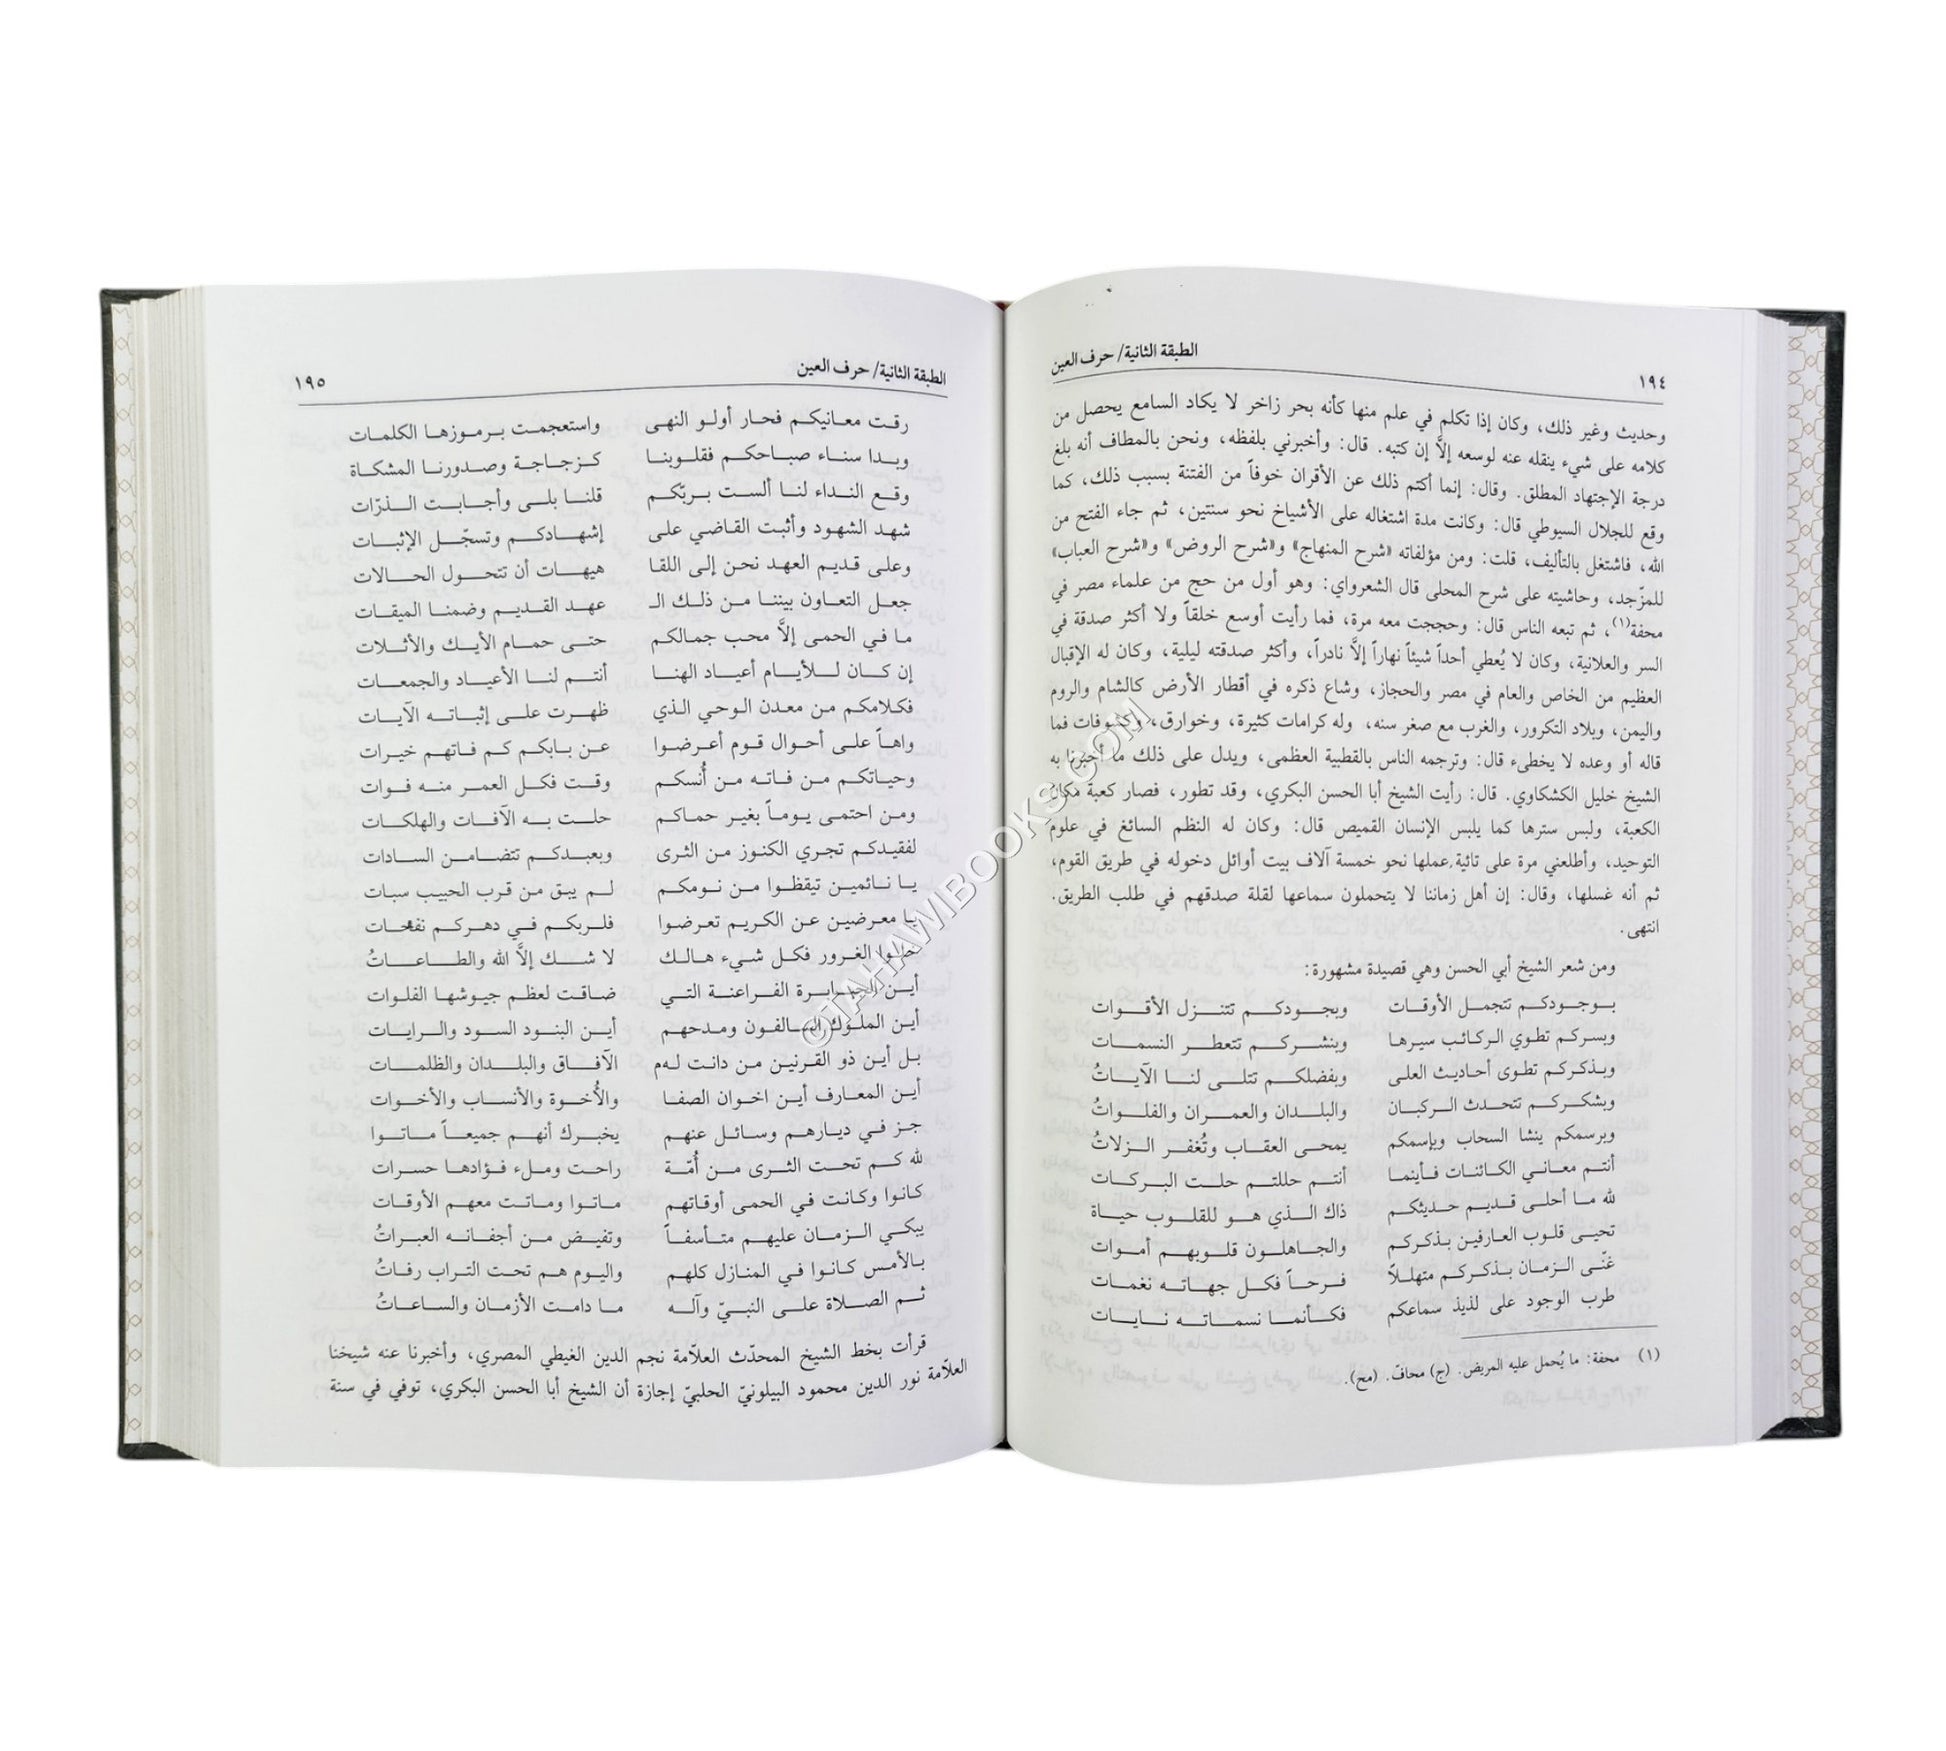 ١٩٤
الطبقة الثانية/ حرف العين
وحديث وغير ذلك، وكان إذا تكلم في علم منها كأنه بحر زاخر لا يكاد السامع يحصل من
كلامه على شيء ينقله عنه لوسعه إلَّا إن كتبه. قال: وأخبرني بلفظه، ونحن بالمطاف أنه بلغ
درجة الإجتهاد المطلق. وقال: إنما أكتم ذلك عن الأقران خوفاً من الفتنة بسبب ذلك، كما
وقع للجلال السيوطي قال: وكانت مدة اشتغاله على الأشياخ نحو سنتين، ثم جاء الفتح من
الله، فاشتغل بالتأليف، قلت: ومن مؤلفاته «شرح المنهاج» و«شرح الروض» و«شرح العباب»
للمزّجد، وحاشيته على شرح المحلى قال الشعرواي: وهو أول من حج من علماء مصر في
محفة(١)، ثم تبعه الناس قال: وحججت معه مرة، فما رأيت أوسع خلقاً ولا أكثر صدقة في
السر والعلانية، وكان لا يُعطي أحداً شيئاً نهاراً إلَّا نادراً، وأكثر صدقته ليلية، وكان له الإقبال
العظيم من الخاص والعام في مصر والحجاز، وشاع ذكره في أقطار الأرض كالشام والروم
واليمن، وبلاد التكرور، والغرب مع صغر سنه، وله كرامات كثيرة، وخوارق، وكشوفات فما
قاله أو وعده لا يخطىء قال: وترجمه الناس بالقطبية العظمى، ويدل على ذلك ما أخبرنا به
الشيخ خليل الكشكاوي. قال: رأيت الشيخ أبا الحسن البكري، وقد تطور، فصار كعبة مكان
الكعبة، ولبس سترها كما يلبس الإنسان القميص قال: وكان له النظم السائغ في علوم
التوحيد، وأطلعني مرة على تائية عملها نحو خمسة آلاف بيت أوائل دخوله في طريق القوم،
ثم أنه غسلها، وقال: إن أهل زماننا لا يتحملون سماعها لقلة صدقهم في طلب الطريق.
انتهى.
ومن شعر الشيخ أبي الحسن وهي قصيدة مشهورة:
بوجودكم تتجمل الأوقات وبجودكم تتنزل الأقوات
وبسركم تطوي الركائب سيرها وبنشركم تتعطر النسمات
وبذكركم تطوى أحاديث العلى وبفضلكم تتلى لنا الآياتُ
وبشكركم تتحدث الركبان والبلدان والعمران والفلواتُ
وبرسمكم ينشا السحاب وبإسمكم يمحى العقاب وتُغفر الزلاتُ
أنتم معاني الكائنات فأينما أنتم حللتم حلت البركات
لله ما أحلى قديم حديثكم ذاك الذي هو للقلوب حياة
تحيى قلوب العارفين بذكركم والجاهلون قلوبهم أموات
غنّى الزمان بذكركم متهللاً فرحاً فكل جهاته نغمات
طرب الوجود على لذيذ سماعكم فكأنما نسماته نايات
(١) محفة: ما يُحمل عليه المريض. (ج) محافّ. (مح).
الطبقة الثانية/ حرف العين
١٩٥
رقت معانيكم فحار أولو النهى واستعجمت برموزها الكلمات
وبدا سناء صباحكم فقلوبنا كزجاجة وصدورنا المشكاة
وقع النداء لنا ألست بربّكم قلنا بلى وأجابت الذرّات
شهد الشهود وأثبت القاضي على إشهادكم وتسجّل الإثبات
وعلى قديم العهد نحن إلى اللقا هيهات أن تتحول الحالات
جعل التعاون بيننا من ذلك الـ عهد القديم وضمنا الميقات
ما في الحمى إلَّا محب جمالكم حتى حمام الأيك والأثلات
إن كان للأيام أعياد الهنا أنتم لنا الأعياد والجمعات
فكلامكم من معدن الوحي الذي ظهرت على إثباته الآيات
واهاً على أحوال قوم أعرضوا عن بابكم كم فاتهم خيرات
وحياتكم من فاته من أُنسكم وقت فكل العمر منه فوات
ومن احتمى يوماً بغير حماكم حلت به الآفات والهلكات
لفقيدكم تجري الكنوز من الثرى وبعبدكم تتضامن السادات
يا نائمين تيقظوا من نومكم لم يبق من قرب الحبيب سبات
يا معرضين عن الكريم تعرضوا فلربكم في دهركم نفحات
خلوا الغرور فكل شيء هالك لا شك إلَّا الله والطاعاتُ
أين الجبابرة الفراعنة التي ضاقت لعظم جيوشها الفلوات
أين الملوك السالفون ومدحهم أين البنود السود والرايات
بل أين ذو القرنين من دانت لهم الآفاق والبلدان والظلمات
أين المعارف أين اخوان الصفا والأُخوة والأنساب والأخوات
جز في ديارهم وسائل عنهم يخبرك أنهم جميعاً ماتوا
لله كم تحت الثرى من أُمّة راحت وملء فؤادها حسرات
كانوا وكانت في الحمى أوقاتهم ماتوا وماتت معهم الأوقات
يبكي الزمان عليهم متأسفاً وتفيض من أجفانه العبراتُ
بالأمس كانوا في المنازل كلهم واليوم هم تحت التراب رفاتُ
ثم الصلاة على النبيّ وآله ما دامت الأزمان والساعاتُ
قرأت بخط الشيخ المحدّث العلاّمة نجم الدين الغيطي المصري، وأخبرنا عنه شيخنا
العلاّمة نور الدين محمود البيلونيّ الحلبيّ إجازة أن الشيخ أبا الحسن البكري، توفي في سنة
©TAHAWIBOOKS.COM